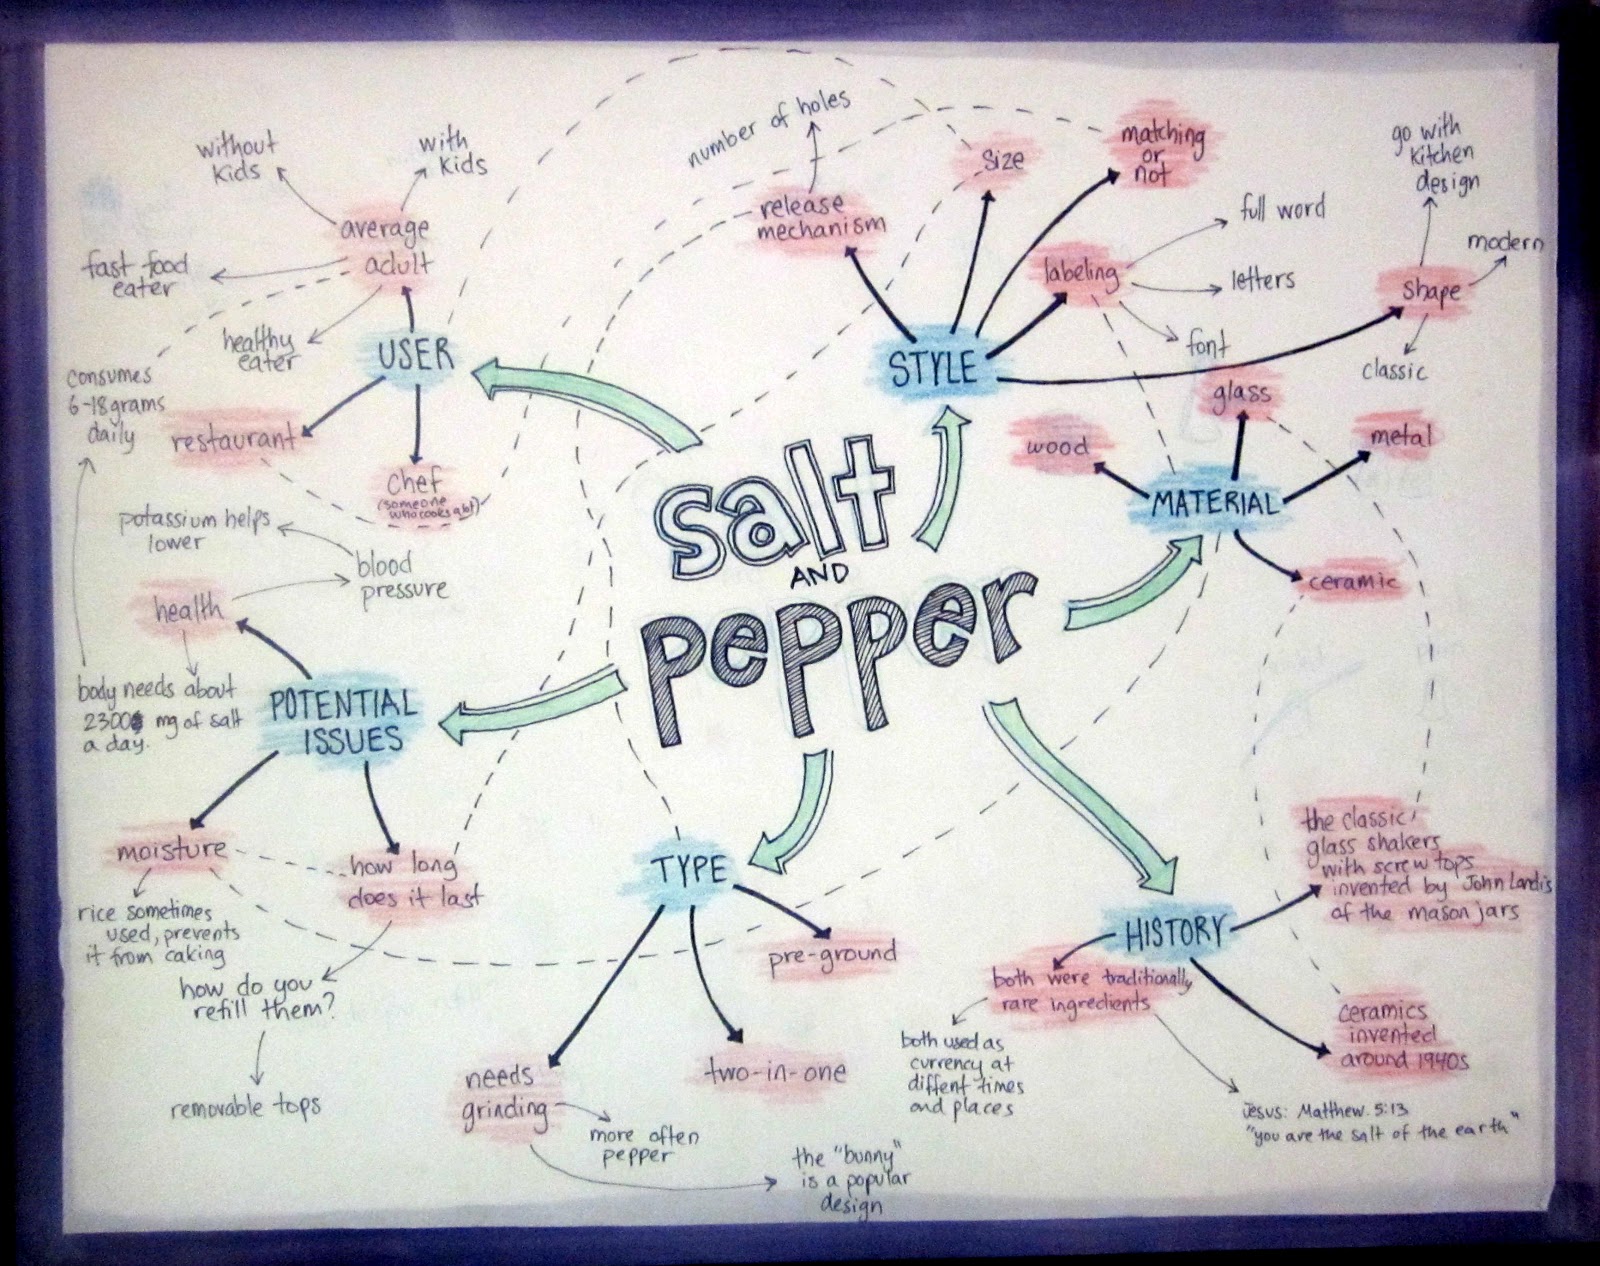 salt
AND
pepper
USER
average
adult
without
kids
with
kids
fast food
eater
healthy
eater
consumes
6-18 grams
daily
restaurant
chef
(someone
who cooks a lot)
STYLE
release
mechanism
number of holes
size
matching
or
not
labeling
full word
letters
font
shape
go with
kitchen
design
modern
classic
MATERIAL
wood
glass
metal
ceramic
HISTORY
the classic
glass shakers
with screw tops
invented by John Landis
of the mason jars
ceramics
invented
around 1940s
both were traditionally
rare ingredients
both used as
currency at
diffent times
and places
Jesus: Matthew 5:13
"you are the salt of the earth"
TYPE
pre-ground
two-in-one
needs
grinding
more often
pepper
the "bunny"
is a popular
design
POTENTIAL
ISSUES
health
blood
pressure
potassium helps
lower
body needs about
2300 mg of salt
a day.
moisture
rice sometimes
used, prevents
it from caking
how long
does it last
how do you
refill them?
removable tops